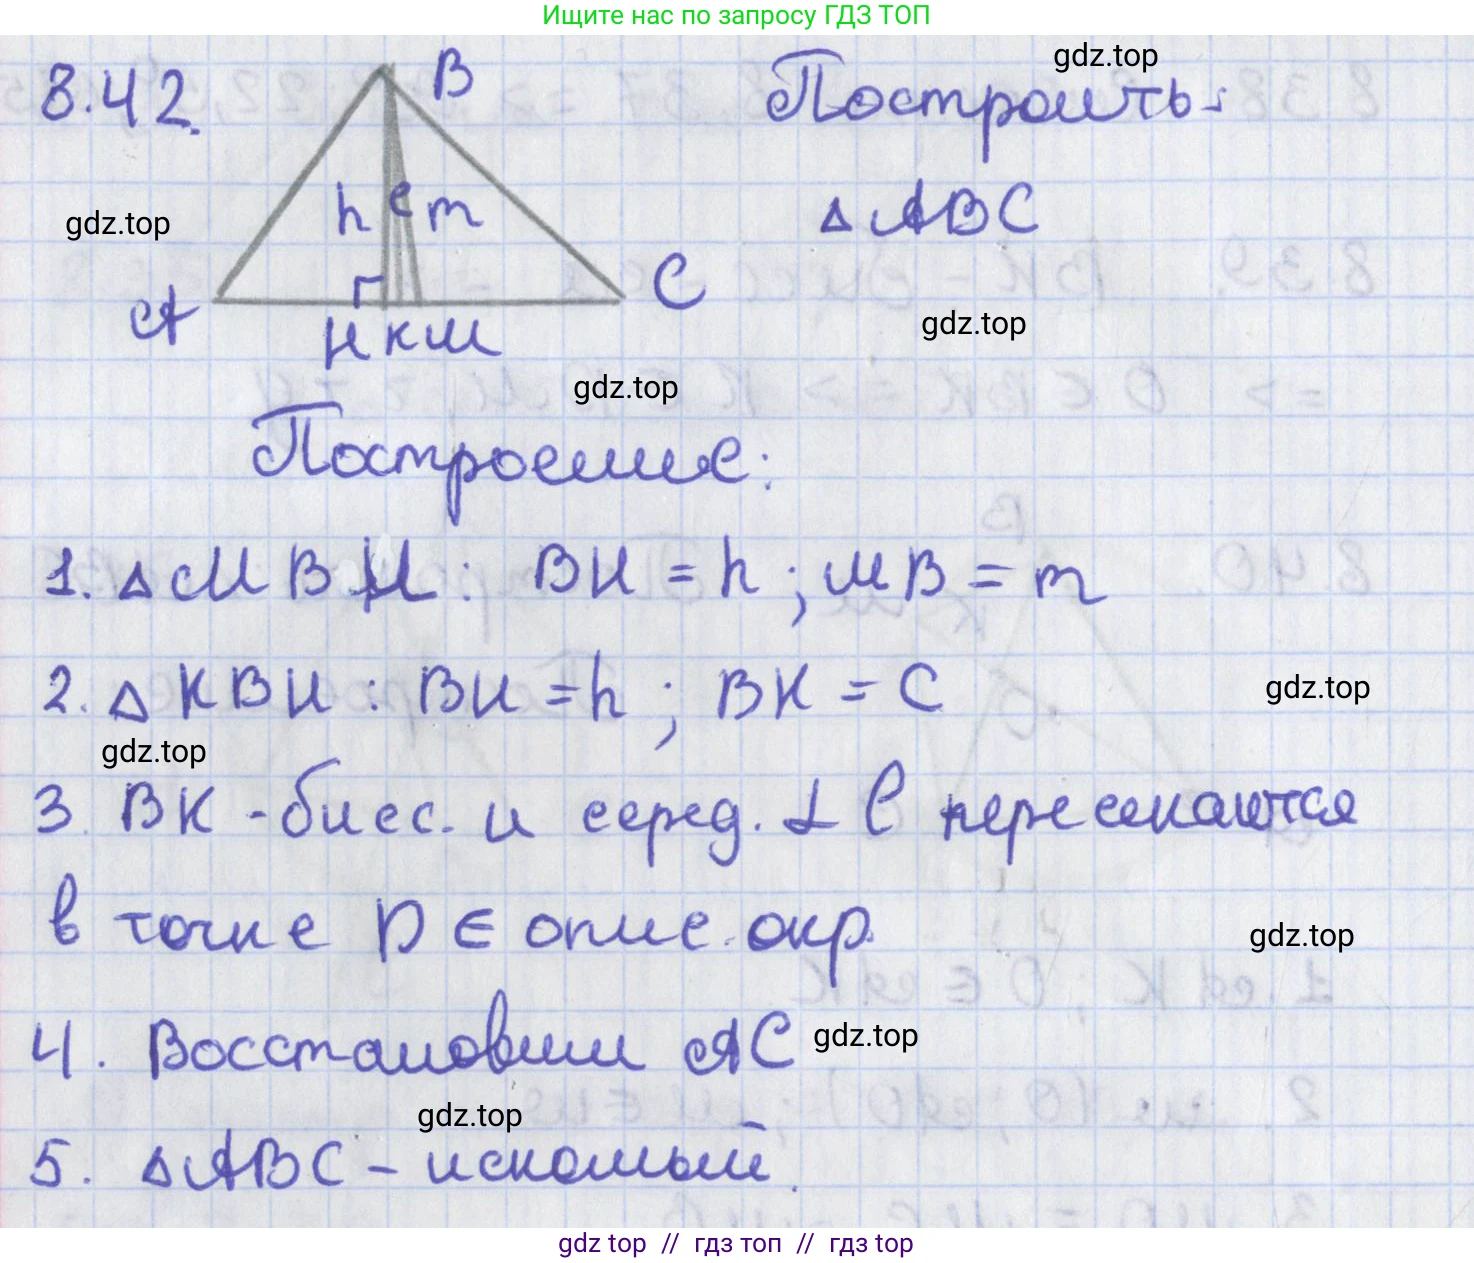 Ищите нас по запросу ГДЗ ТОП
gdz.top
8.42. B Построить:
h e m
△ABC
gdz.top
A C
H K M
gdz.top
gdz.top
Построение:
1. △MBH: BH = h; MB = m
2. △KBH: BH = h; BK = C
gdz.top
gdz.top
3. BK - бисс. и серед. ⊥ l пересекаются
в точке D ∈ опис. окр.
gdz.top
4. Восстановим AC
gdz.top
gdz.top
5. △ABC – искомый.
gdz top // гдз топ // гдз top